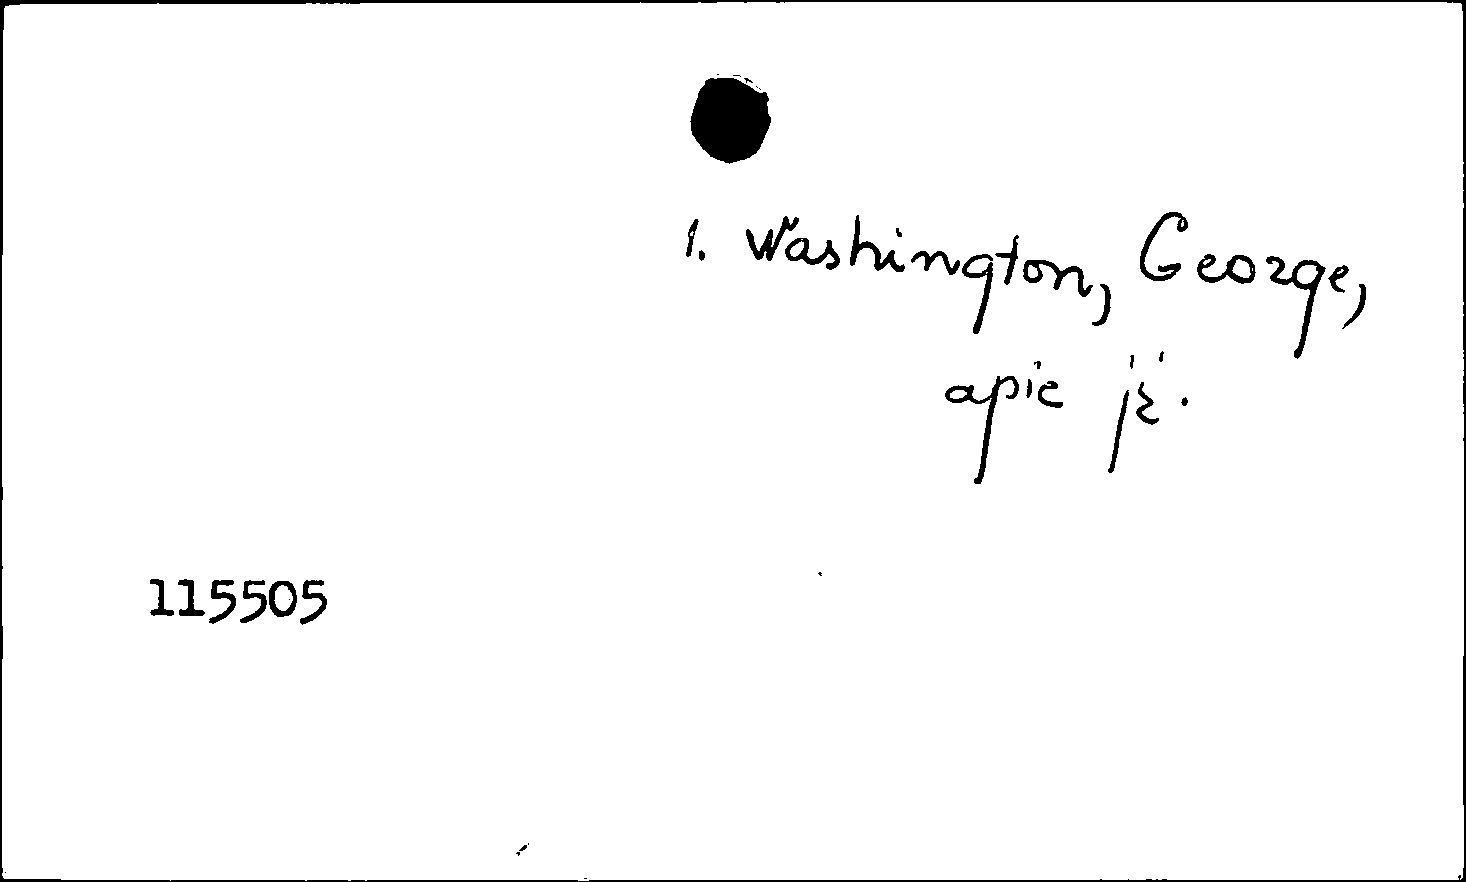 1. Washington, George,
apie jį.
115505